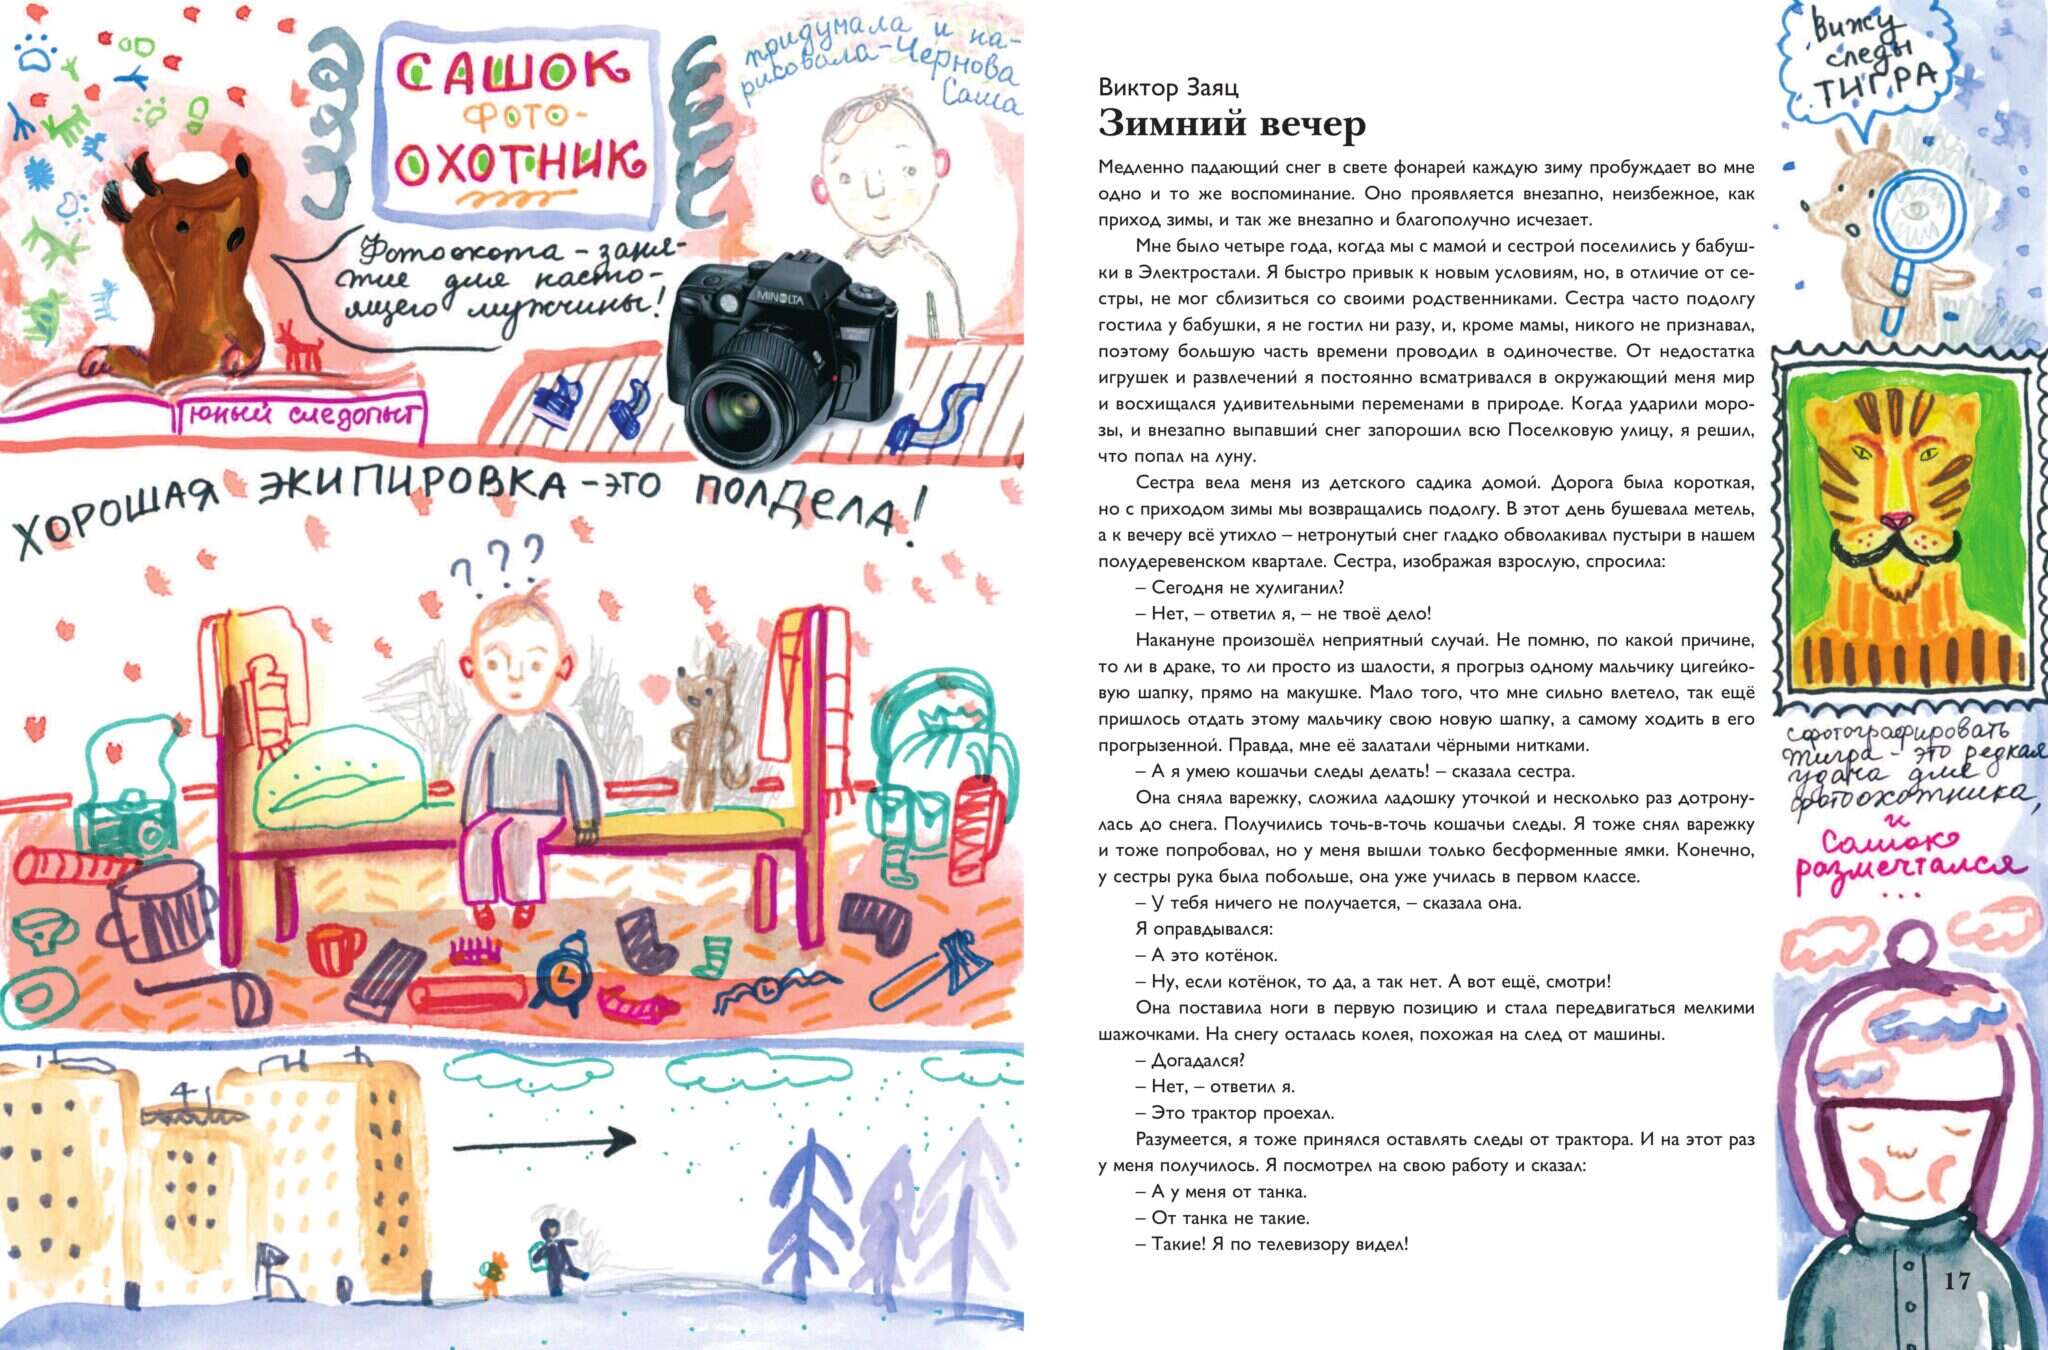 САШОК
ФОТО-
ОХОТНИК
придумала и на-
рисовала-Чернова
Саша
Фотоохота - заня-
тие для насто-
ящего мужчины!
MINOLTA
юный следопыт
ХОРОШАЯ ЭКИПИРОВКА - ЭТО ПОЛДЕЛА!
???
Виктор Заяц
Зимний вечер
Медленно падающий снег в свете фонарей каждую зиму пробуждает во мне
одно и то же воспоминание. Оно проявляется внезапно, неизбежное, как
приход зимы, и так же внезапно и благополучно исчезает.
Мне было четыре года, когда мы с мамой и сестрой поселились у бабуш-
ки в Электростали. Я быстро привык к новым условиям, но, в отличие от се-
стры, не мог сблизиться со своими родственниками. Сестра часто подолгу
гостила у бабушки, я не гостил ни разу, и, кроме мамы, никого не признавал,
поэтому большую часть времени проводил в одиночестве. От недостатка
игрушек и развлечений я постоянно всматривался в окружающий меня мир
и восхищался удивительными переменами в природе. Когда ударили моро-
зы, и внезапно выпавший снег запорошил всю Поселковую улицу, я решил,
что попал на луну.
Сестра вела меня из детского садика домой. Дорога была короткая,
но с приходом зимы мы возвращались подолгу. В этот день бушевала метель,
а к вечеру всё утихло – нетронутый снег гладко обволакивал пустыри в нашем
полудеревенском квартале. Сестра, изображая взрослую, спросила:
– Сегодня не хулиганил?
– Нет, – ответил я, – не твоё дело!
Накануне произошёл неприятный случай. Не помню, по какой причине,
то ли в драке, то ли просто из шалости, я прогрыз одному мальчику цигейко-
вую шапку, прямо на макушке. Мало того, что мне сильно влетело, так ещё
пришлось отдать этому мальчику свою новую шапку, а самому ходить в его
прогрызенной. Правда, мне её залатали чёрными нитками.
– А я умею кошачьи следы делать! – сказала сестра.
Она сняла варежку, сложила ладошку уточкой и несколько раз дотрону-
лась до снега. Получились точь-в-точь кошачьи следы. Я тоже снял варежку
и тоже попробовал, но у меня вышли только бесформенные ямки. Конечно,
у сестры рука была побольше, она уже училась в первом классе.
– У тебя ничего не получается, – сказала она.
Я оправдывался:
– А это котёнок.
– Ну, если котёнок, то да, а так нет. А вот ещё, смотри!
Она поставила ноги в первую позицию и стала передвигаться мелкими
шажочками. На снегу осталась колея, похожая на след от машины.
– Догадался?
– Нет, – ответил я.
– Это трактор проехал.
Разумеется, я тоже принялся оставлять следы от трактора. И на этот раз
у меня получилось. Я посмотрел на свою работу и сказал:
– А у меня от танка.
– От танка не такие.
– Такие! Я по телевизору видел!
Вижу
следы
ТИГРА
сфотографировать
тигра - это редкая
удача для
фотоохотника,
и
Сашок
размечтался
...
17